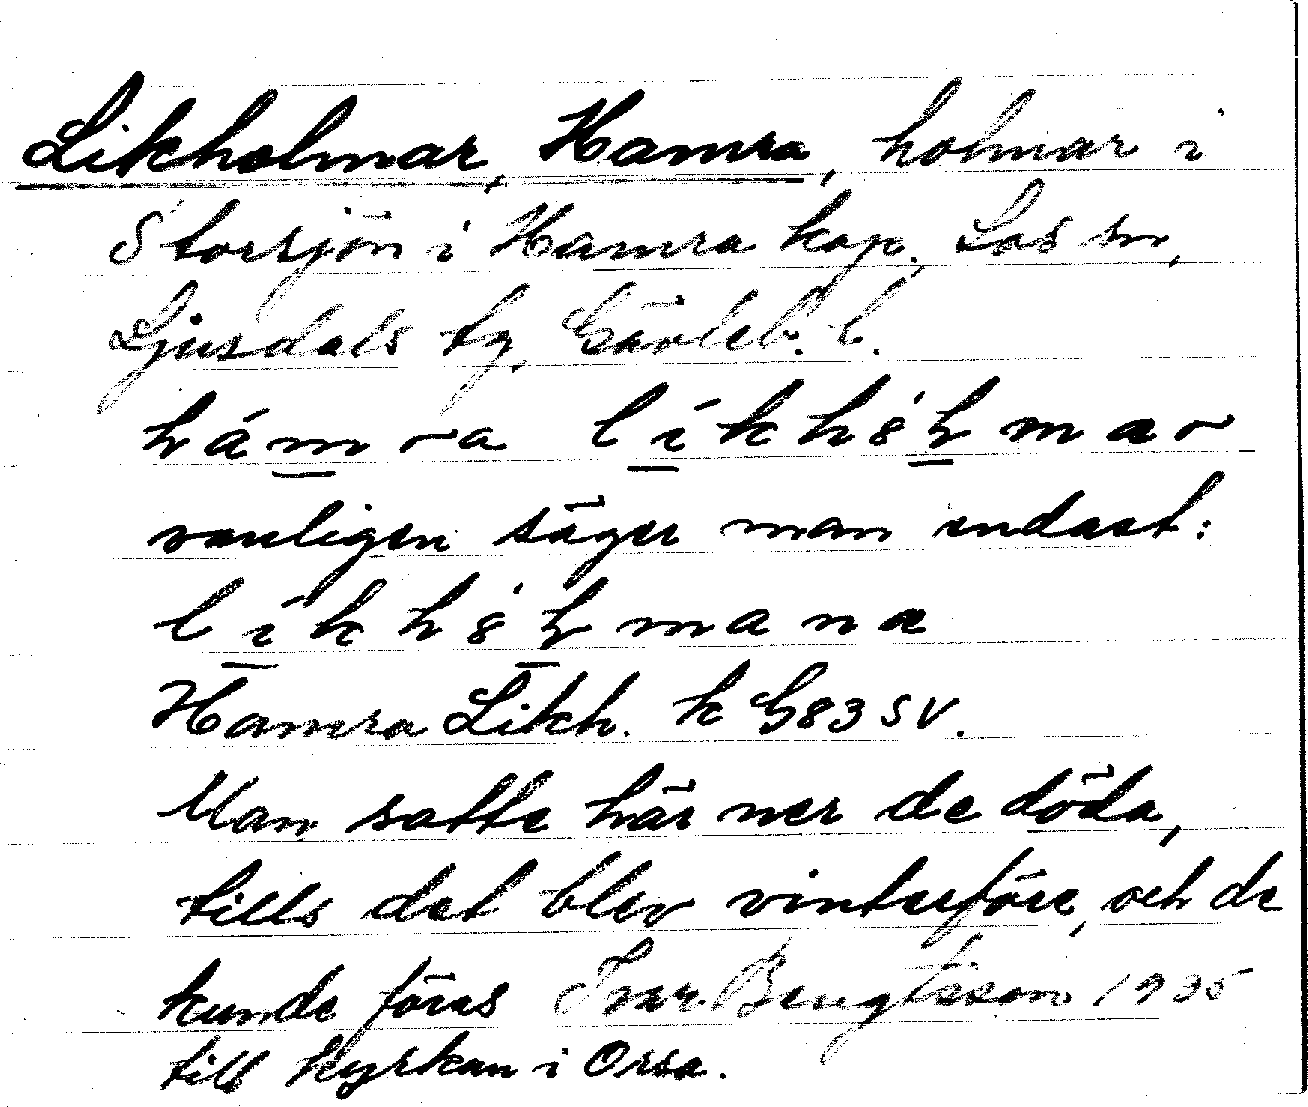 Likholmar, Hamra, holmar i
Storsjön i Hamra kap. Los sn,
Ljusdals tg, Gävleb. l.
hámra líkhòlmar
vanligen säger man endast:
líkhòlmana
Hamra Likh. k G83 SV.
Man satte här ner de döda,
tills det blev vinterföre, och de
kunde föras Ivar Bengtsson 1935
till kyrkan i Orsa.